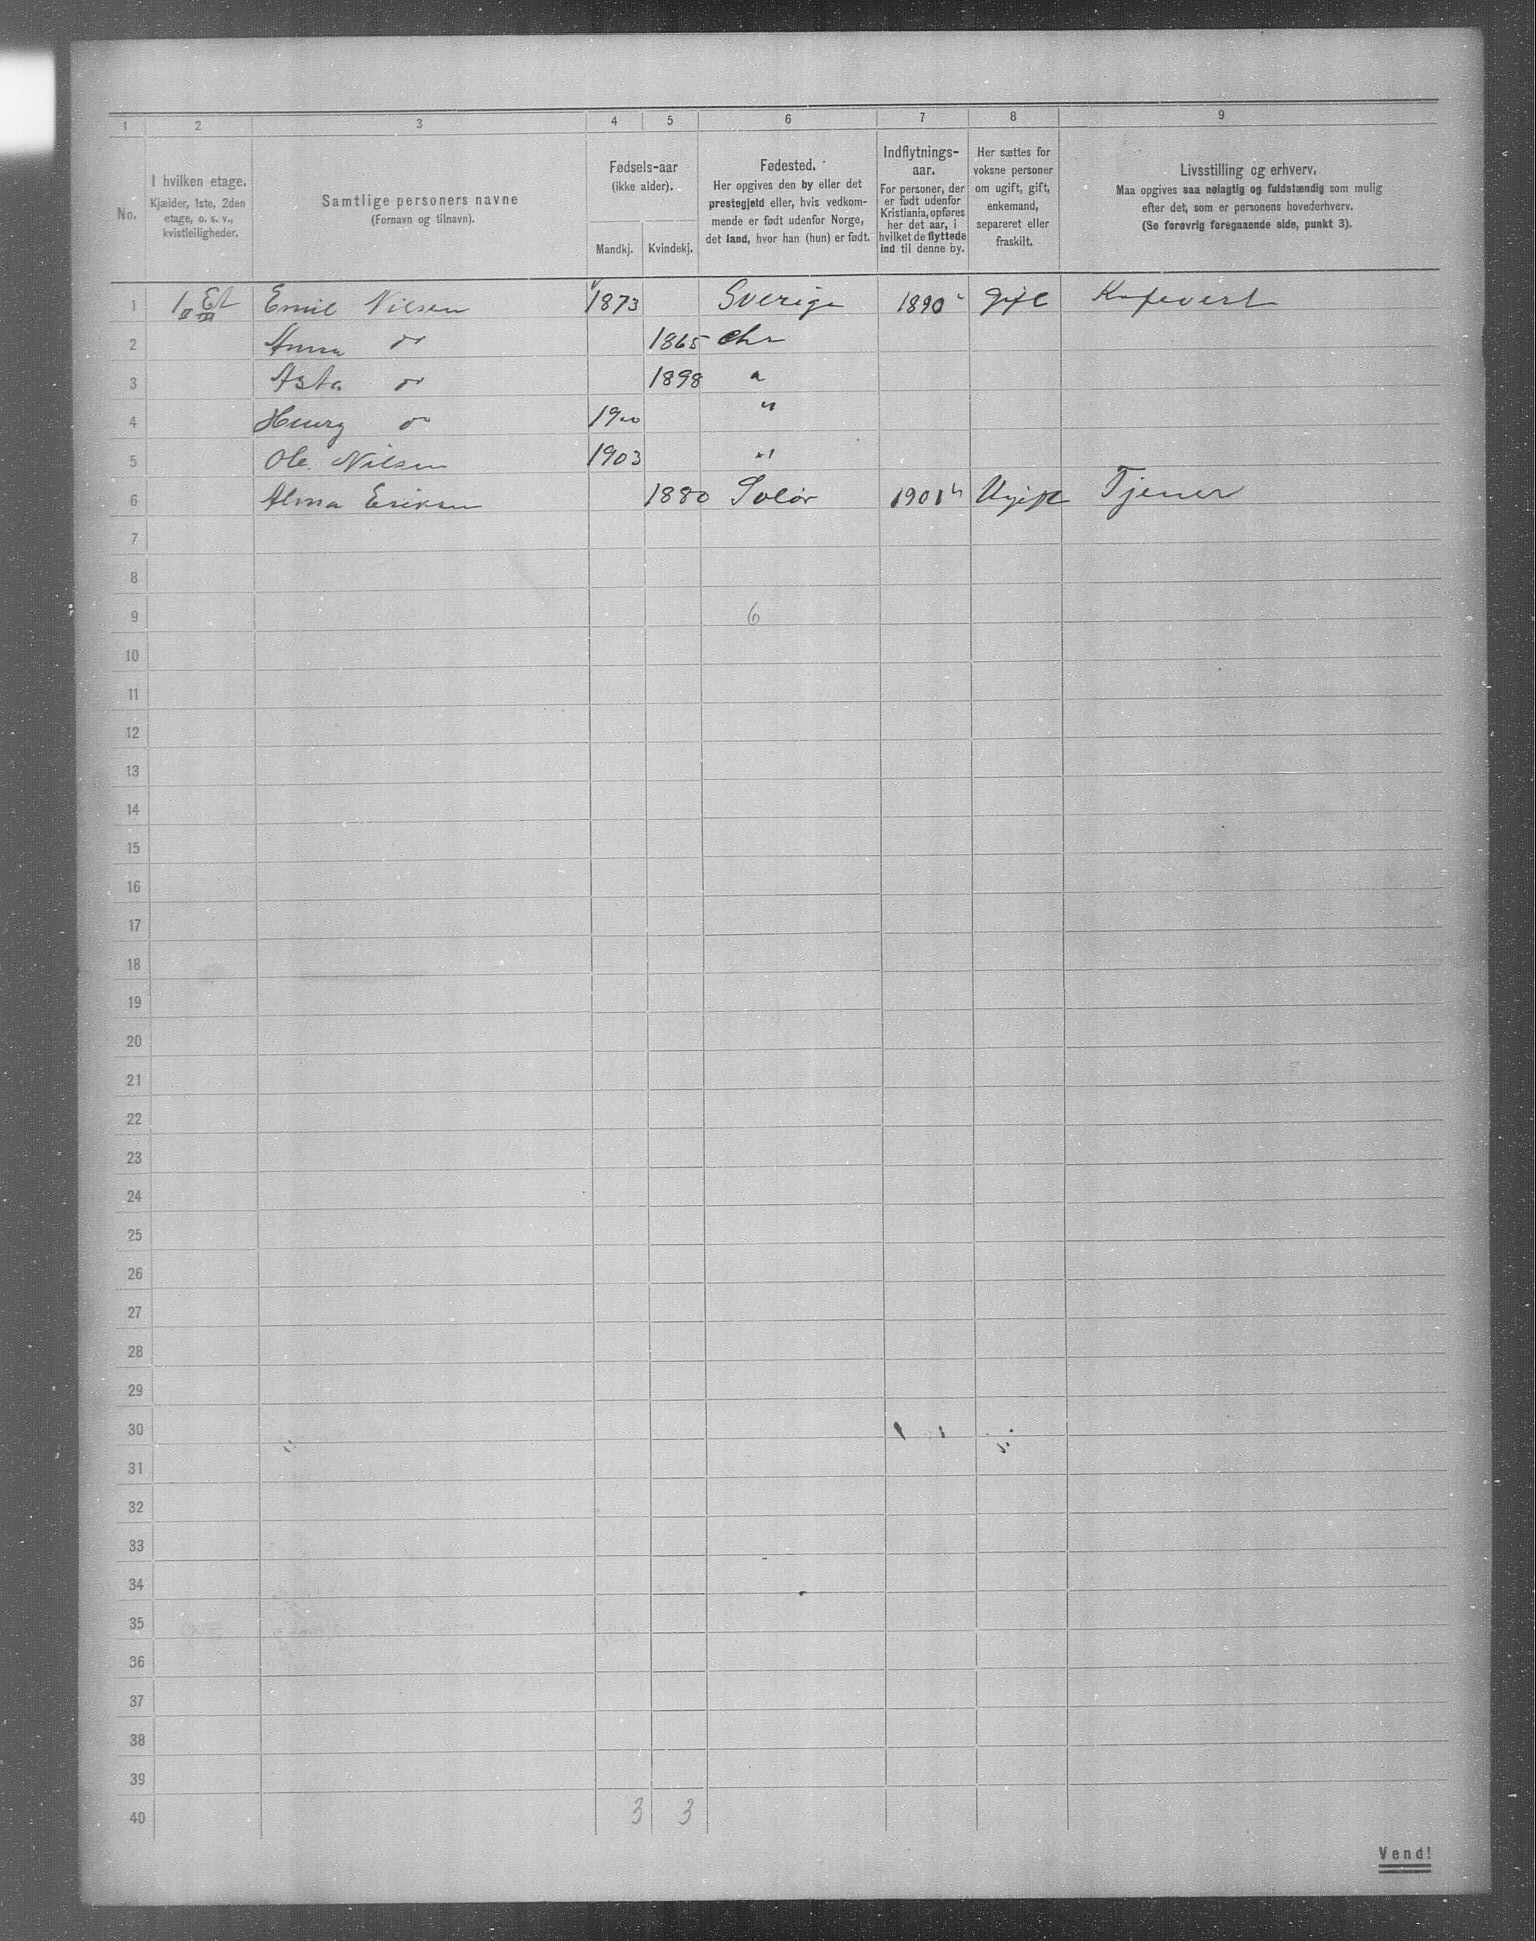 1 2 3 4 5 6 7 8 9
No.
I hvilken etage.
Kjælder, 1ste, 2den
etage, o. s. v.,
kvistleiligheder.
Samtlige personers navne
(Fornavn og tilnavn).
Fødsels-aar
(ikke alder).
Mandkj. Kvindekj.
Fødested.
Her opgives den by eller det
prestegjeld eller, hvis vedkom-
mende er født udenfor Norge,
det land, hvor han (hun) er født.
Indflytnings-
aar.
For personer, der
er født udenfor
Kristiania, opføres
her det aar, i
hvilket de flyttede
ind til denne by.
Her sættes for
voksne personer
om ugift, gift,
enkemand,
separeret eller
fraskilt.
Livsstilling og erhverv.
Maa opgives saa nøiagtig og fuldstændig som mulig
efter det, som er personens hovederhverv.
(Se forøvrig foregaaende side, punkt 3).
1 1 Et Emil Nilsen 1873 Sverige 1890 gift Kafevert
2 Anna do 1865 Chr
3 Asta do 1898 "
4 Henry do 1900 "
5 Ole Nilsen 1903 "
6 Alma Eriksen 1880 Solør 1901 Ugift Tjener
7
8
9 6
10
11
12
13
14
15
16
17
18
19
20
21
22
23
24
25
26
27
28
29
30
31
32
33
34
35
36
37
38
39
40 3 3
Vend!